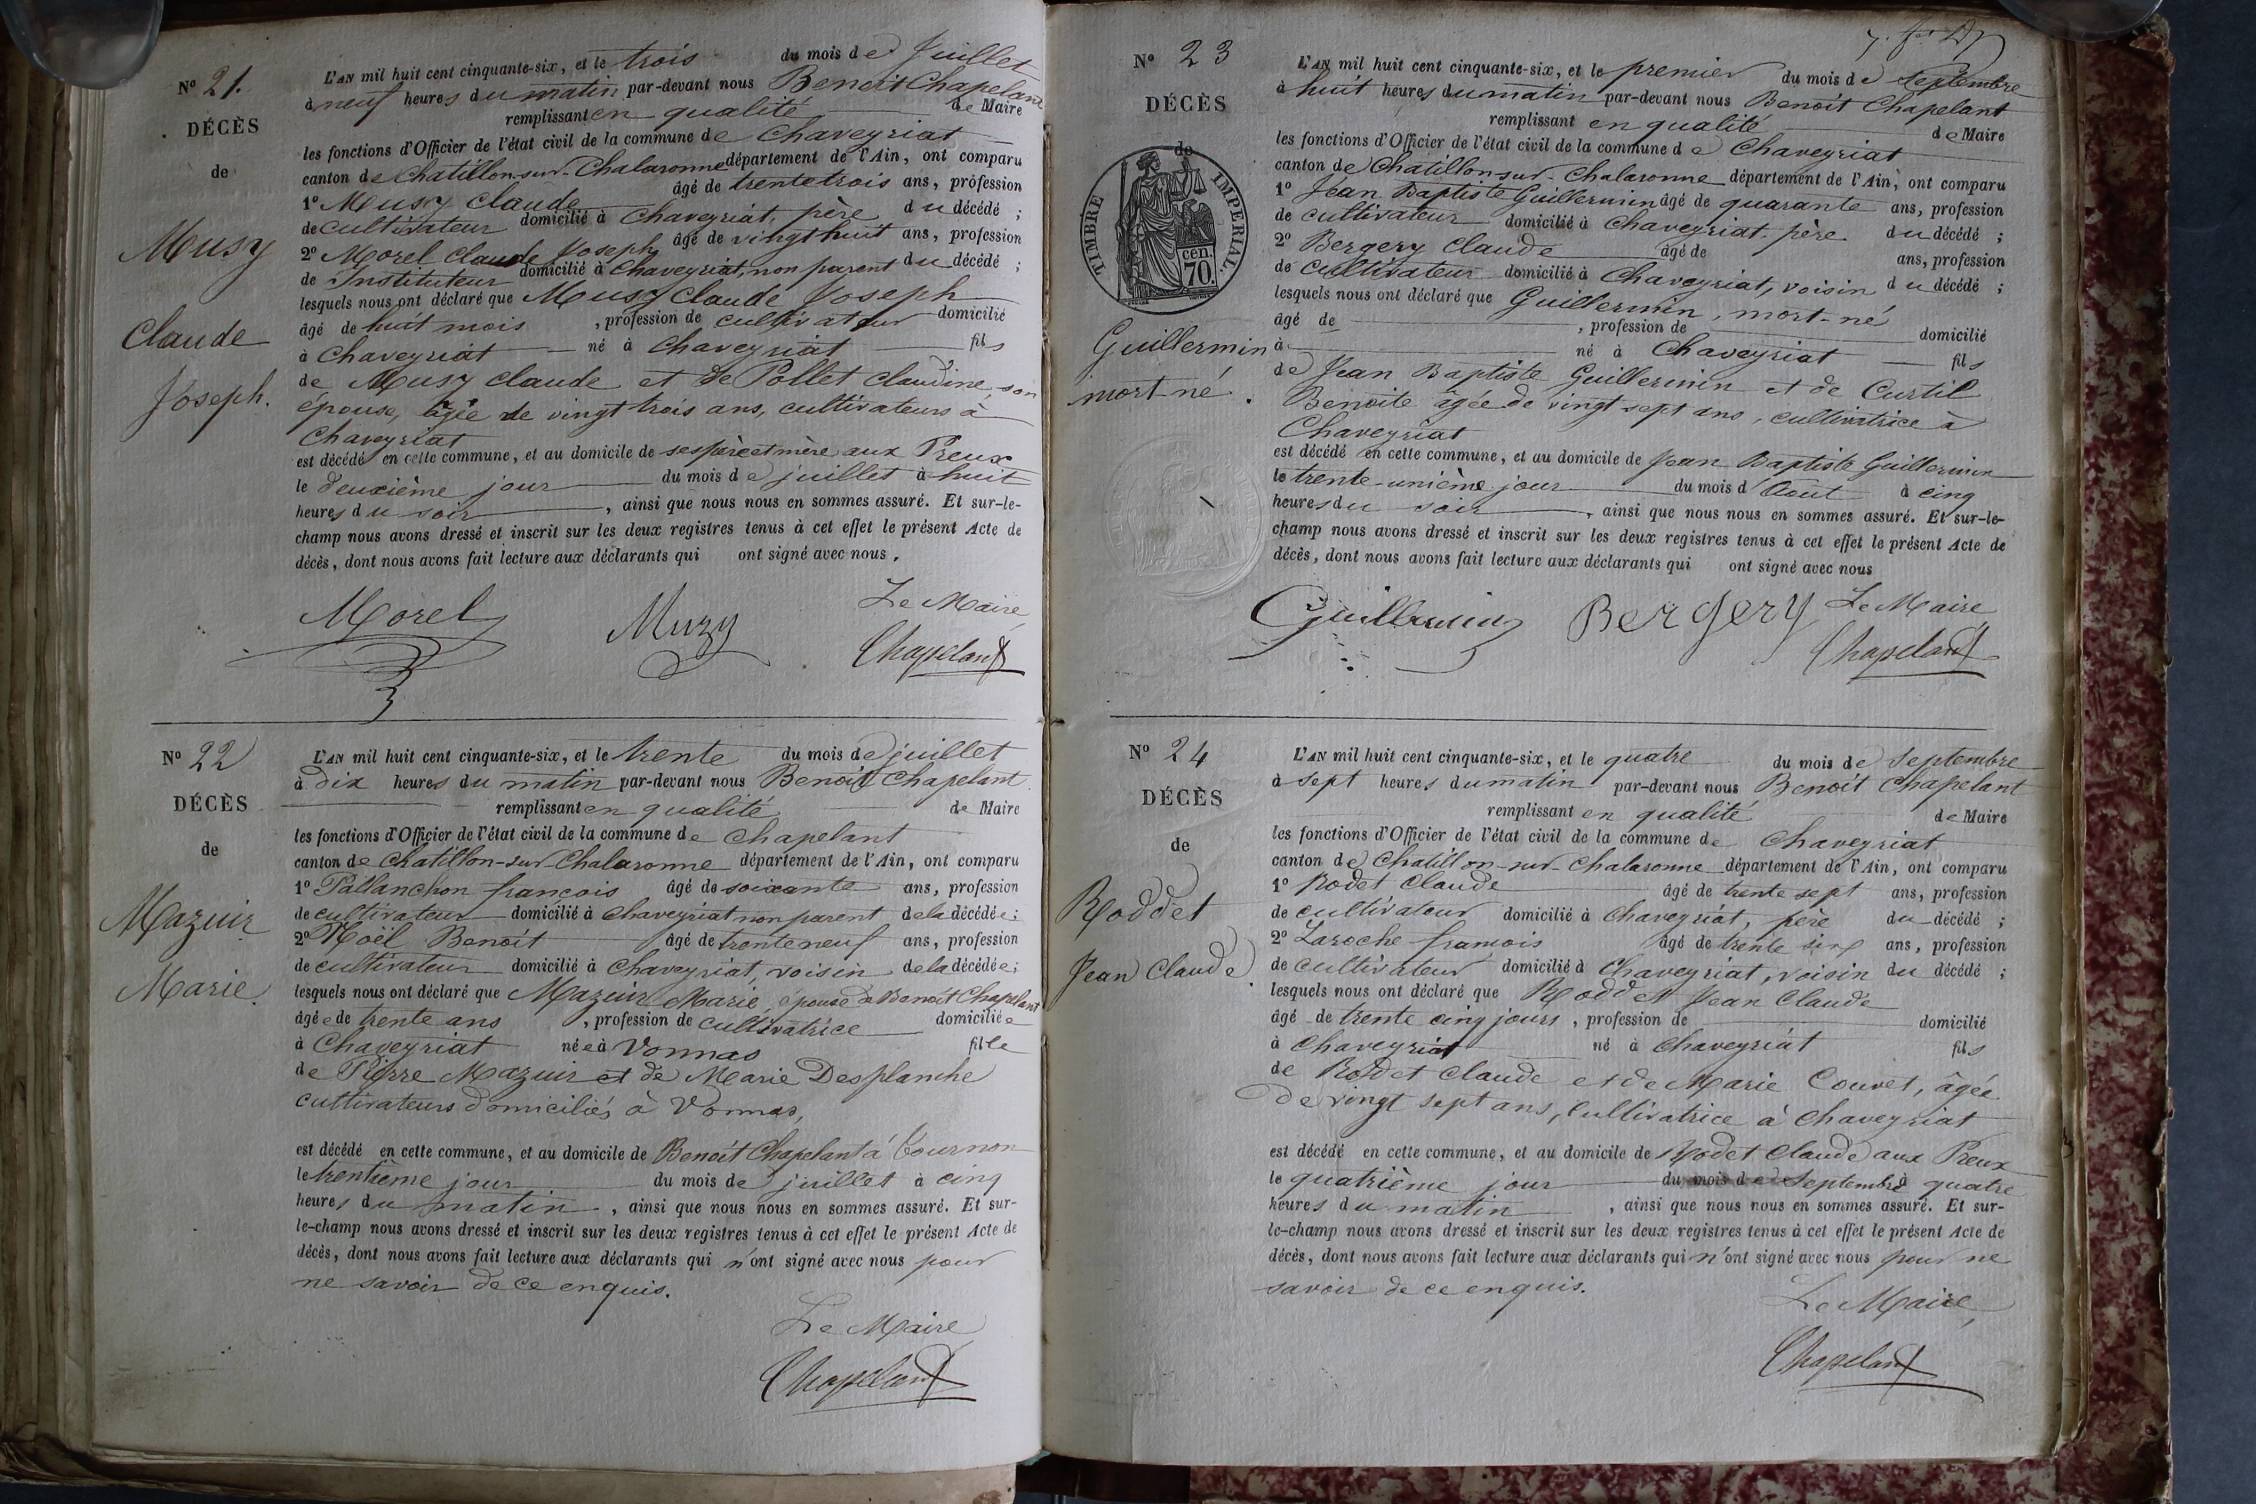 Nº 21.
DÉCÈS
de
Musy
Claude
Joseph.
L'AN mil huit cent cinquante-six, et le trois du mois de Juillet
à neuf heures du matin par-devant nous Benoit Chapelant
remplissant en qualité de Maire
les fonctions d'Officier de l'état civil de la commune de Chaveyriat
canton de Chatillon-sur-Chalaronne département de l'Ain, ont comparu
1º Musy Claude âgé de trente trois ans, profession
de cultivateur domicilié à Chaveyriat, père du décédé ;
2º Morel Claude Joseph âgé de vingt huit ans, profession
de Instituteur domicilié à Chaveyriat, non parent du décédé ;
lesquels nous ont déclaré que Musy Claude Joseph
âgé de huit mois , profession de cultivateur domicilié
à Chaveyriat né à Chaveyriat fils
de Musy Claude et de Pollet Claudine, son
épouse, âgée de vingt trois ans, cultivateurs à
Chaveyriat
est décédé en cette commune, et au domicile de ses père et mère aux Preux
le deuxième jour du mois de juillet à huit
heures du soir , ainsi que nous nous en sommes assuré. Et sur-le-
champ nous avons dressé et inscrit sur les deux registres tenus à cet effet le présent Acte de
décès, dont nous avons fait lecture aux déclarants qui ont signé avec nous.
Le Maire
Morel Muzy Chapelant
Nº 22
DÉCÈS
de
Mazuir
Marie.
L'AN mil huit cent cinquante-six, et le trente du mois de juillet
à dix heures du matin par-devant nous Benoit Chapelant
remplissant en qualité de Maire
les fonctions d'Officier de l'état civil de la commune de Chapelant
canton de Chatillon-sur-Chalaronne département de l'Ain, ont comparu
1º Pallanchon françois âgé de soixante ans, profession
de cultivateur domicilié à Chaveyriat non parent de la décédée ;
2º Noël Benoit âgé de trente neuf ans, profession
de cultivateur domicilié à Chaveyriat, voisin de la décédée ;
lesquels nous ont déclaré que Mazuir Marie, épouse à Benoit Chapelant
âgée de trente ans , profession de cultivatrice domiciliée
à Chaveyriat née à Vonnas fille
de Pierre Mazuir et de Marie Desplanche
cultivateurs domiciliés à Vonnas,
est décédé en cette commune, et au domicile de Benoit Chapelant à Tournon
le trentième jour du mois de juillet à cinq
heures du matin , ainsi que nous nous en sommes assuré. Et sur-
le-champ nous avons dressé et inscrit sur les deux registres tenus à cet effet le présent Acte de
décès, dont nous avons fait lecture aux déclarants qui n'ont signé avec nous pour
ne savoir de ce enquis.
Le Maire
Chapelant
Nº 23
DÉCÈS
de
TIMBRE IMPERIAL.
cen.
70.
Guillermin
mort né.
L'AN mil huit cent cinquante-six, et le premier du mois de Septembre
à huit heures du matin par-devant nous Benoit Chapelant
remplissant en qualité de Maire
les fonctions d'Officier de l'état civil de la commune de Chaveyriat
canton de Chatillon-sur-Chalaronne département de l'Ain, ont comparu
1º Jean Baptiste Guillermin âgé de quarante ans, profession
de cultivateur domicilié à Chaveyriat, père du décédé ;
2º Bergery Claude âgé de ans, profession
de cultivateur domicilié à Chaveyriat, voisin du décédé ;
lesquels nous ont déclaré que Guillermin, mort-né
âgé de , profession de domicilié
à né à Chaveyriat fils
de Jean Baptiste Guillermin et de Curtil
Benoite âgée de vingt sept ans, cultivatrice à
Chaveyriat
est décédé en cette commune, et au domicile de Jean Baptiste Guillermin
le trente-unième jour du mois d'Août à cinq
heures du soir , ainsi que nous nous en sommes assuré. Et sur-le-
champ nous avons dressé et inscrit sur les deux registres tenus à cet effet le présent Acte de
décès, dont nous avons fait lecture aux déclarants qui ont signé avec nous
Le Maire
Guillermin Bergery Chapelant
Nº 24
DÉCÈS
de
Roddet
Jean Claude.
L'AN mil huit cent cinquante-six, et le quatre du mois de Septembre
à sept heures du matin par-devant nous Benoit Chapelant
remplissant en qualité de Maire
les fonctions d'Officier de l'état civil de la commune de Chaveyriat
canton de Chatillon-sur-Chalaronne département de l'Ain, ont comparu
1º Rodet Claude âgé de trente sept ans, profession
de cultivateur domicilié à Chaveyriat, père du décédé ;
2º Laroche françois âgé de trente ans, profession
de cultivateur domicilié à Chaveyriat, voisin du décédé ;
lesquels nous ont déclaré que Roddet Jean Claude
âgé de trente cinq jours , profession de domicilié
à Chaveyriat né à Chaveyriat fils
de Rodet Claude et de Marie Couvet, âgée
de vingt sept ans, cultivatrice à Chaveyriat
est décédé en cette commune, et au domicile de Rodet Claude aux Preux
le quatrième jour du mois de Septembre à quatre
heures du matin , ainsi que nous nous en sommes assuré. Et sur-
le-champ nous avons dressé et inscrit sur les deux registres tenus à cet effet le présent Acte de
décès, dont nous avons fait lecture aux déclarants qui n'ont signé avec nous pour ne
savoir de ce enquis.
Le Maire
Chapelant